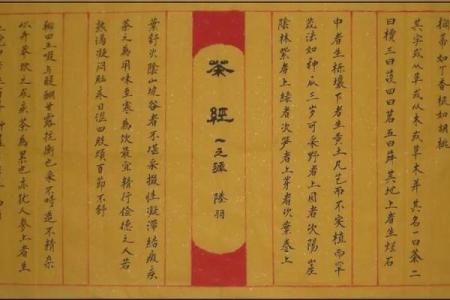 蒂如丁香根如胡桃
其字或从草或从木或草木并其名一曰茶二
曰檟三曰蔎四曰茗五曰荈其地上者生爛石
中者生櫟壤下者生黄土凡艺而不实植而罕
茂法如种瓜三岁可采野者上園者次陽崖
陰林紫者上緑者次笋者上芽者次葉卷上
茶經
一之源
陸羽
葉舒次陰山坡谷者不堪采掇性凝滞结瘕疾
茶之為用味至寒為飲最宜精行俭德之人若
熱渴凝闷脑疼目涩四肢烦百節不舒
聊四五啜与醍醐甘露抗衡也采不時造不精杂
以卉莽飲之成疾茶為累也亦犹人參上者生